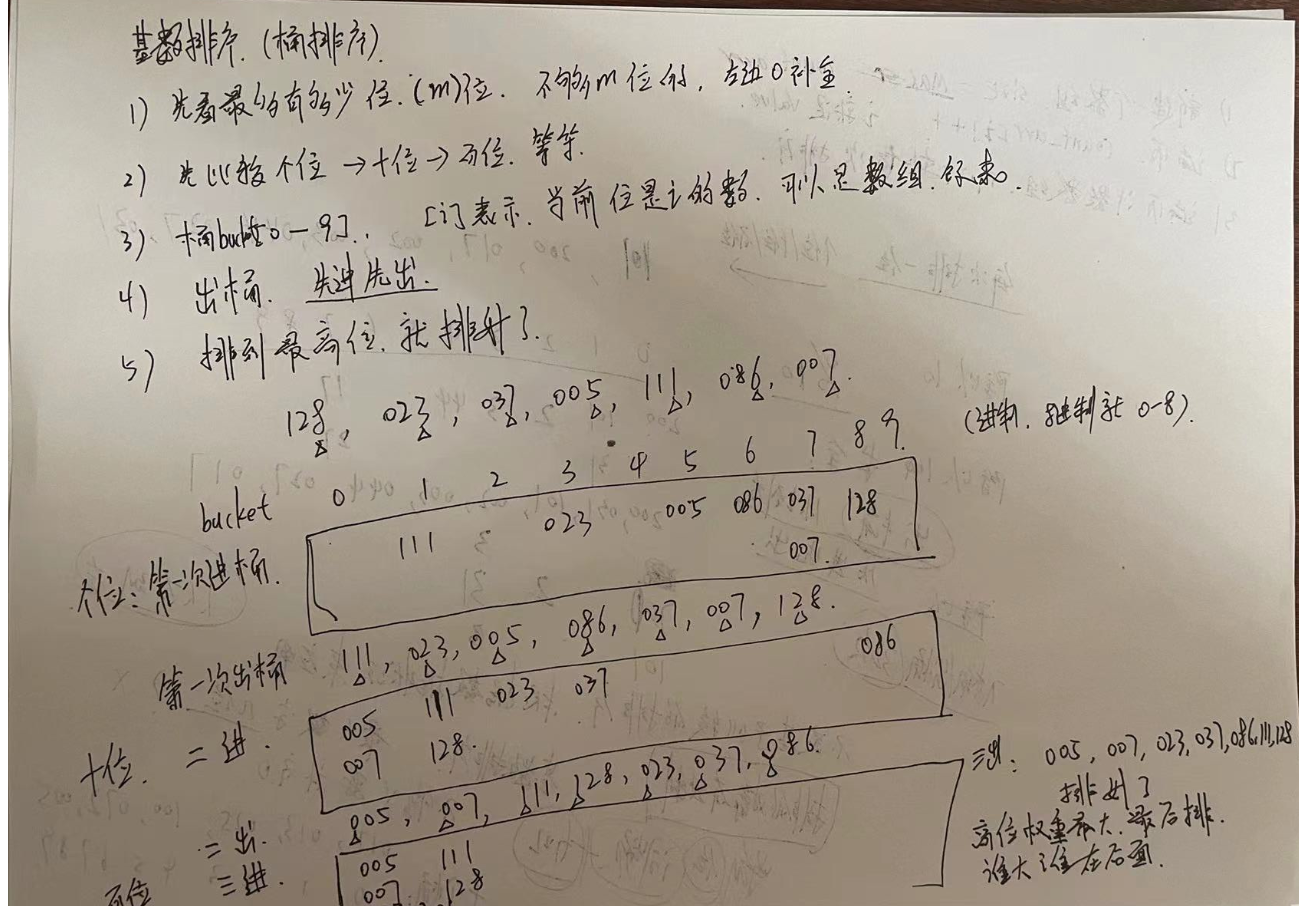 基数排序.(桶排序).
1) 先看最多有多少位.(m)位. 不够m位的,左边0补全.
2) 先比较个位→十位→百位.等等.
3) 桶bucket[0-9]., [i]表示.当前位是i的数.可以是数组.链表.
4) 出桶. 先进先出.
5) 排到最高位.就排好了.
128, 023, 037, 005, 111, 086, 007.
(进制. 8进制就 0-8).
bucket 0 1 2 3 4 5 6 7 8 9.
111 023 005 086 037 128
007.
个位:第一次进桶.
第一次出桶 111, 023, 005, 086, 037, 007, 128.
十位. 二进. 005 111 023 037 086
007 128.
二出. 005, 007, 111, 128, 023, 037, 086.
百位 三进. 005 111
007 128
三出: 005, 007, 023, 037, 086, 111, 128
排好了
高位权重最大.最后排.
谁大谁在后面.